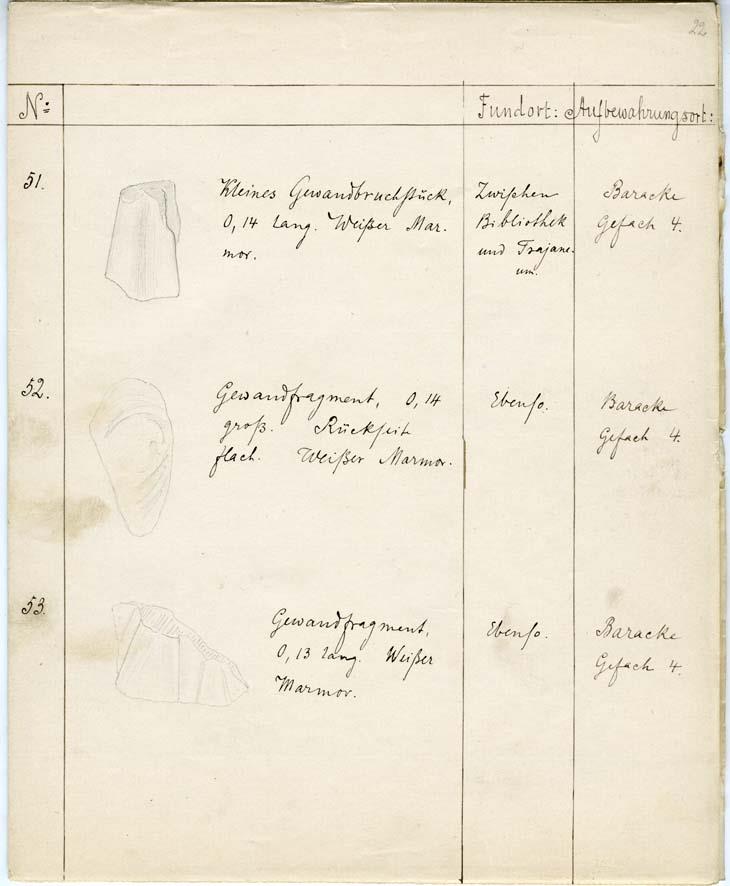 22
No: Fundort: Aufbewahrungsort:
51.
Kleines Gewandbruchstück,
0,14 lang. Weißer Mar-
mor.
Zwischen
Bibliothek
und Trajane-
um.
Baracke
Gefach 4.
52.
Gewandfragment, 0,14
groß. Rückseite
flach. Weißer Marmor.
Ebenso.
Baracke
Gefach 4.
53.
Gewandfragment,
0,13 lang. Weißer
Marmor.
Ebenso.
Baracke
Gefach 4.